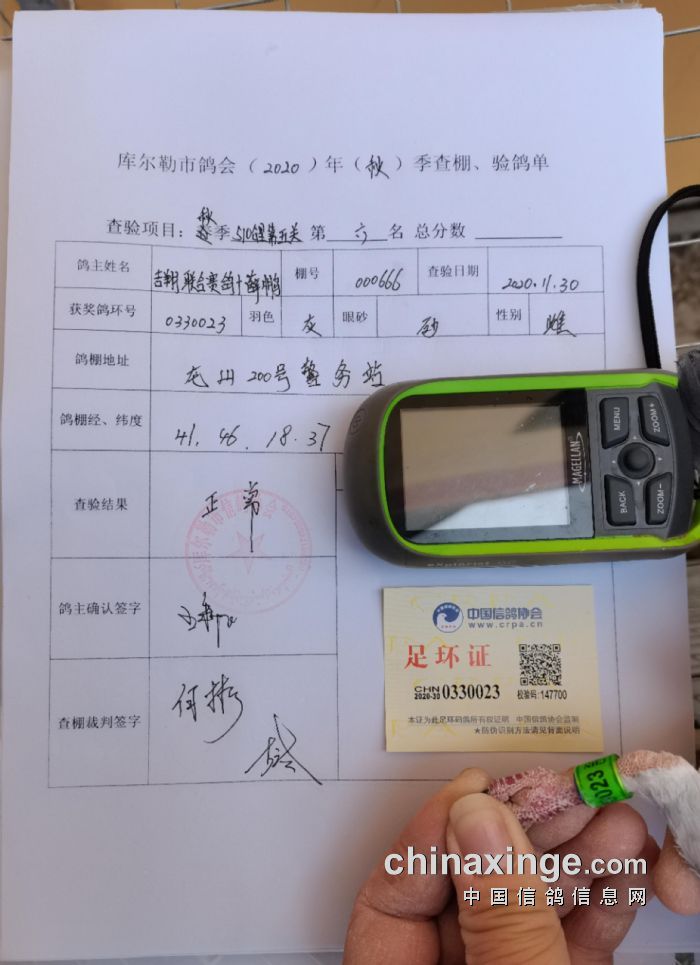 库尔勒市鸽会（2020）年（秋）季查棚、验鸽单
查验项目：秋季510公里第五关 第 六 名 总分数
鸽主姓名 吉翔联合赛鸽 棚号 000666 查验日期 2020.11.30
获奖鸽环号 0330023 羽色 灰 眼砂 砂 性别 雌
鸽棚地址 200号警务站
鸽棚经、纬度 41.46.18.37
查验结果 正常
库尔勒市信鸽协会
鸽主确认签字
查棚裁判签字 何彬
MAGELLAN
MENU
ZOOM+
BACK
ZOOM-
explorist
中国信鸽协会
www.crpa.cn
足环证
CHN
2020-30 0330023 校验码：147700
本证为此足环码鸽所有权证明 中国信鸽协会监制
★防伪识别方法请见背面说明
0023
chinaxinge.com
中国信鸽信息网